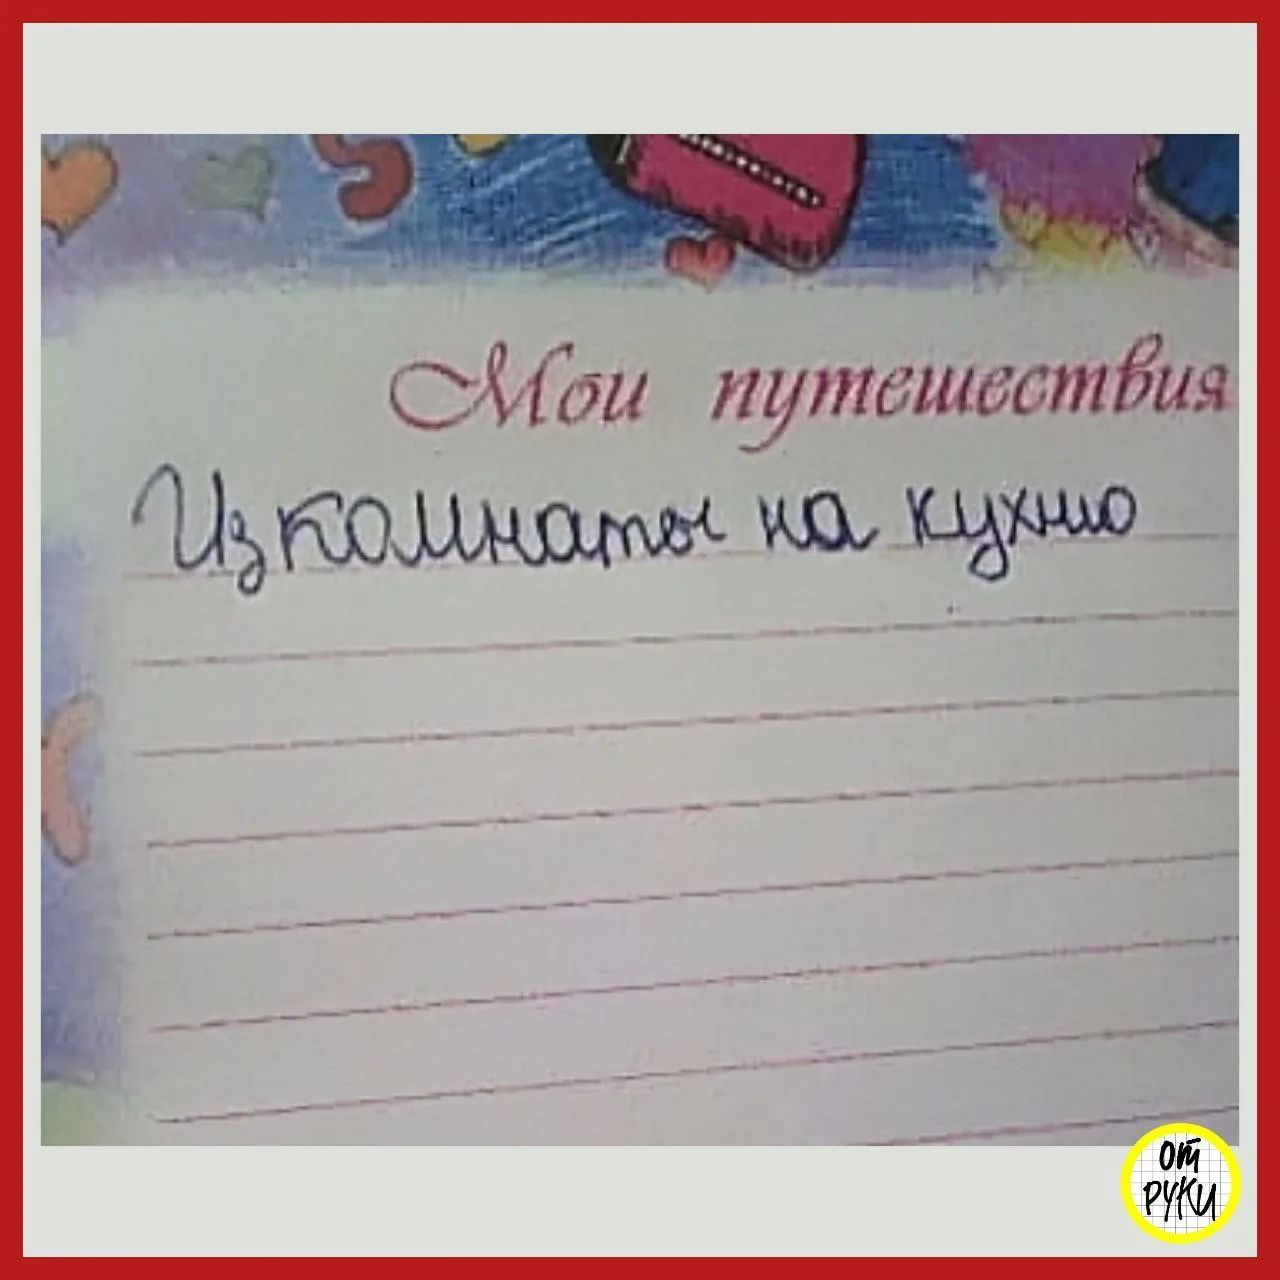 Мои путешествия
Из комнаты на кухню
от
руки